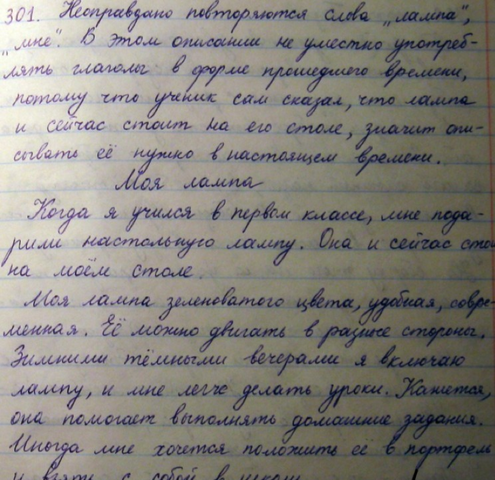 301. Неоправдано повторяются слова „лампа",
„мне". В этом описании не уместно употреб-
лять глаголы в форме прошедшего времени,
потому что ученик сам сказал, что лампа
и сейчас стоит на его столе, значит опи-
сывать её нужно в настоящем времени.
Моя лампа
Когда я учился в первом классе, мне пода-
рили настольную лампу. Она и сейчас стои
на моём столе.
Моя лампа зеленоватого цвета, удобная, совре-
менная. Её можно двигать в разные стороны.
Зимними тёмными вечерами я включаю
лампу, и мне легче делать уроки. Кажется,
она помогает выполнять домашние задания.
Иногда мне хочется положить её в портфель
и взять с собой в школу